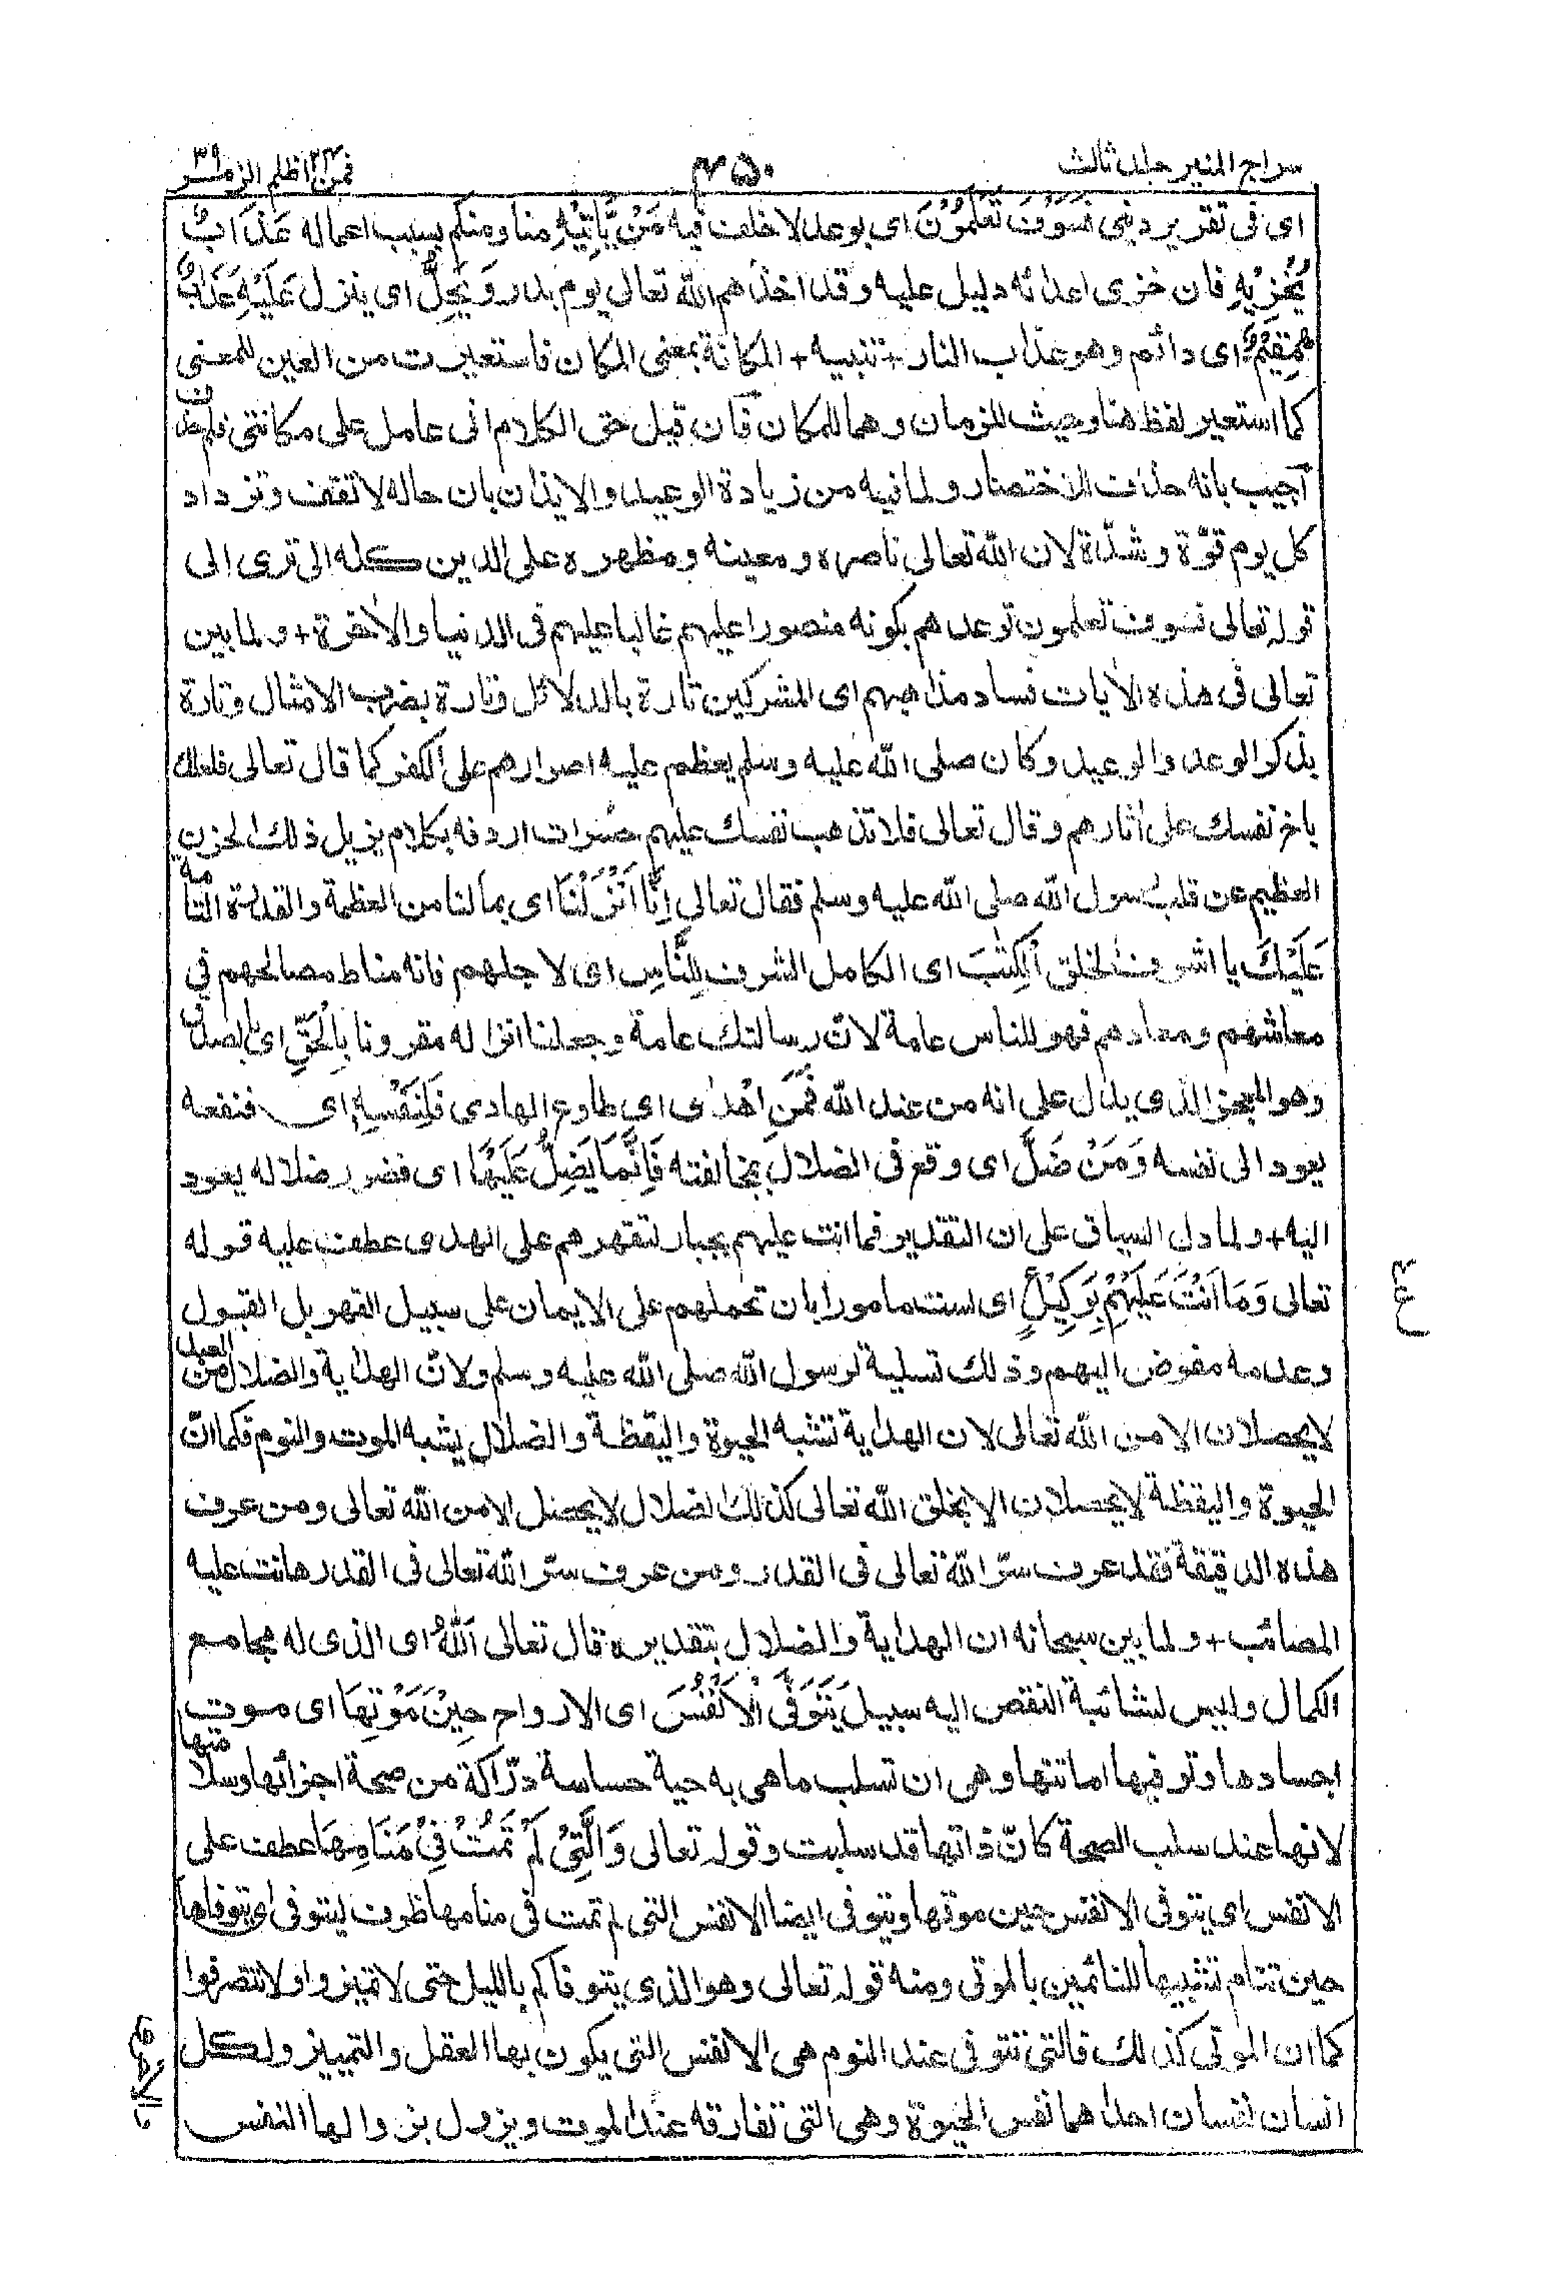 سراج المنير جلد ثالث
۴۵۰
فمن اظلم ۲۴ الزمر ۳۹
اى فى تقرير دينى فَسَوْفَ تَعْلَمُوْنَ اى بوعد لا خلف فيه مَنْ يَّاْتِيْهِ منا ومنكم بسبب اعماله عَذَابٌ
يُّخْزِيْهِ فان خزى اعدائه دليل عليه وقد اخذهم الله تعالى يوم بدر وَيَحِلُّ اى ينزل عَلَيْهِ عَذَابٌ
مُّقِيْمٌ اى دائم وهو عذاب النار + تنبيه + المكانة بمعنى المكان فاستعيرت من العين للمعنى
كما استعير لفظ هنا وحيث للزمان وهما للمكان فان قيل حق الكلام انى عامل على مكانتى فلم حذف
اجيب بانه حذف للاختصار ولما فيه من زيادة الوعيد والايذان بان حاله لا تقف وتزداد
كل يوم قوّة وشدّة لان الله تعالى ناصره ومعينه ومظهره على الدين كله الا ترى الى
قوله تعالى فسوف تعلمون توعدهم بكونه منصورا عليهم غالبا عليهم فى الدنيا والاٰخرة + ولما بين
تعالى فى هذه الاٰيات فساد مذاهبهم اى المشركين تارة بالدلائل وتارة بضرب الامثال وتارة
بذكر الوعد والوعيد وكان صلى الله عليه وسلم يعظم عليه اصرارهم على الكفر كما قال تعالى فلعلك
باخع نفسك على اٰثارهم وقال تعالى فلا تذهب نفسك عليهم حسرات اردفه بكلام يزيل ذلك الحزن
العظيم عن قلب رسول الله صلى الله عليه وسلم فقال تعالى اِنَّا اَنْزَلْنَا اى بما لنا من العظمة والقدرة التامة
عَلَيْكَ يا اشرف الخلق الْكِتٰبَ اى الكامل الشرف لِلنَّاسِ اى لاجلهم فانه مناط مصالحهم فى
معاشهم ومعادهم فهو للناس عامة لانّ رسالتك عامة وجعلنا انزاله مقرونا بِالْحَقِّ اى بالصدق
وهو المعجز الذى يدل على انه من عند الله فَمَنِ اهْتَدٰى اى طاوع الهادى فَلِنَفْسِهٖ اى فنفعه
يعود الى نفسه وَمَنْ ضَلَّ اى وقع فى الضلال بمخالفته فَاِنَّمَا يَضِلُّ عَلَيْهَا اى فضرر ضلاله يعود
اليه + ولما دل السياق على ان التقدير فما انت عليهم بجبار لتقهرهم على الهدى عطف عليه قوله
تعالى وَمَا اَنْتَ عَلَيْهِمْ بِوَكِيْلٍ اى لست مامورا بان تحملهم على الايمان على سبيل القهر بل القبول
وعدمه مفوض اليهم وذلك تسلية لرسول الله صلى الله عليه وسلم ولانّ الهداية والضلال من العبد
لا يحصلان الا من الله تعالى لان الهداية تشبه الحيوة واليقظة والضلال يشبه الموت والنوم فكما انّ
الحيوة واليقظة لا يحصلان الا بخلق الله تعالى كذلك الضلال لا يحصل الا من الله تعالى ومن عرف
هذه الدقيقة فقد عرف سرّ الله تعالى فى القدر ومن عرف سرّ الله تعالى فى القدر هانت عليه
المصائب + ولما بين سبحانه ان الهداية والضلال بتقديره قال تعالى اَللّٰهُ اى الذى له مجامع
الكمال وليس لشائبة النقص اليه سبيل يَتَوَفَّى الْاَنْفُسَ اى الارواح حِيْنَ مَوْتِهَا اى موت
اجسادها وتوفيها اماتتها وهى ان تسلب ما هى به حية حساسة درّاكة من صحة اجزائها وسلامتها
لانها عند سلب الصحة كانّ ذاتها قد سلبت وقوله تعالى وَالَّتِىْ لَمْ تَمُتْ فِىْ مَنَامِهَا عطف على
الانفس اى يتوفى الانفس حين موتها ويتوفى ايضا الانفس التى لم تمت فى منامها ظرف ليتوفى اى يتوفاها
حين تنام تشبيها للنائمين بالموتى ومنه قوله تعالى وهو الذى يتوفاكم بالليل حتى لا تميزوا ولا تتصرفوا
كما ان الموتى كذلك فالتى تتوفى عند النوم هى الانفس التى يكون بها العقل والتمييز ولكل
انسان نفسان احداهما نفس الحيوة وهى التى تفارقه عند الموت ويزول بزوالها النفس